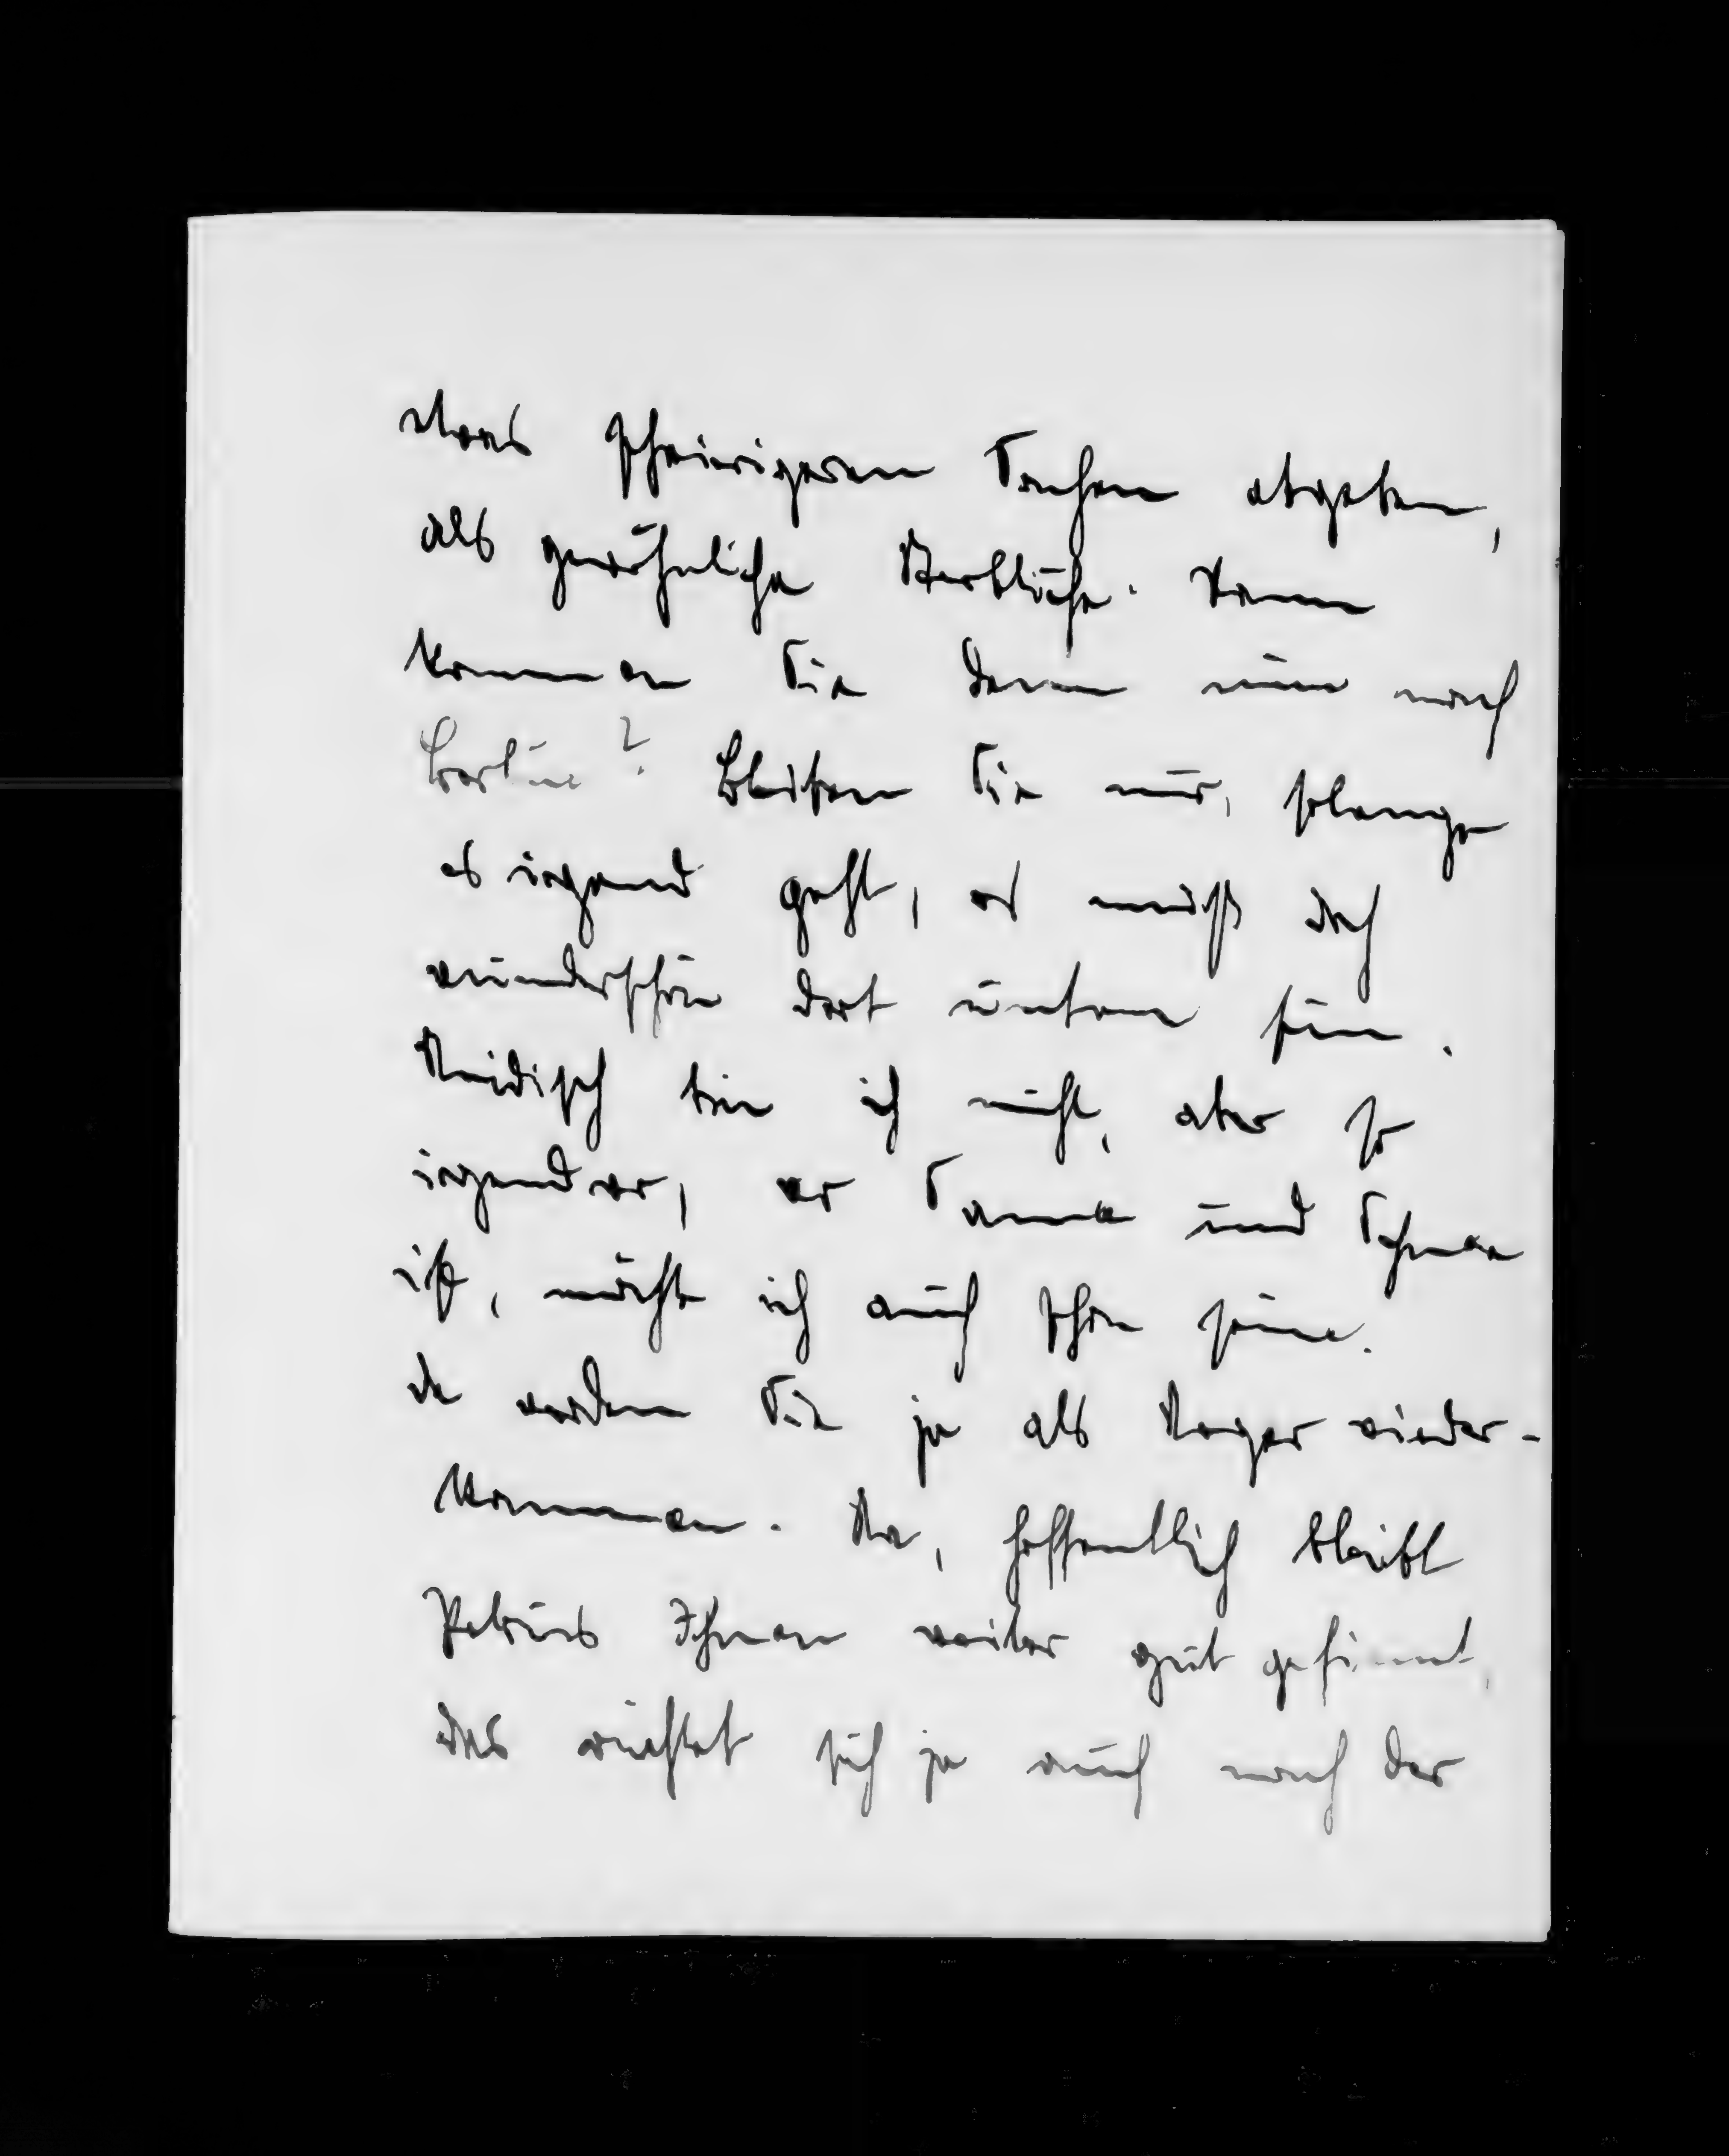 etwas schwierigeren Sachen abgeben,
als gewöhnliche Sterbliche. Wann
kommen Sie denn nun nach
Berlin? Bleiben Sie nur, solange
es irgend geht, es muß doch
wunderschön dort unten sein.
Neidisch bin ich nicht, aber so
irgendwo, wo Sonne und Schnee
ist, möchte ich auch schon sein.
da werden Sie ja als Neger wieder-
kommen. Na, hoffentlich bleibt
Petrus Ihnen weiter gut gesinnt,
das richtet sich ja auch nach der